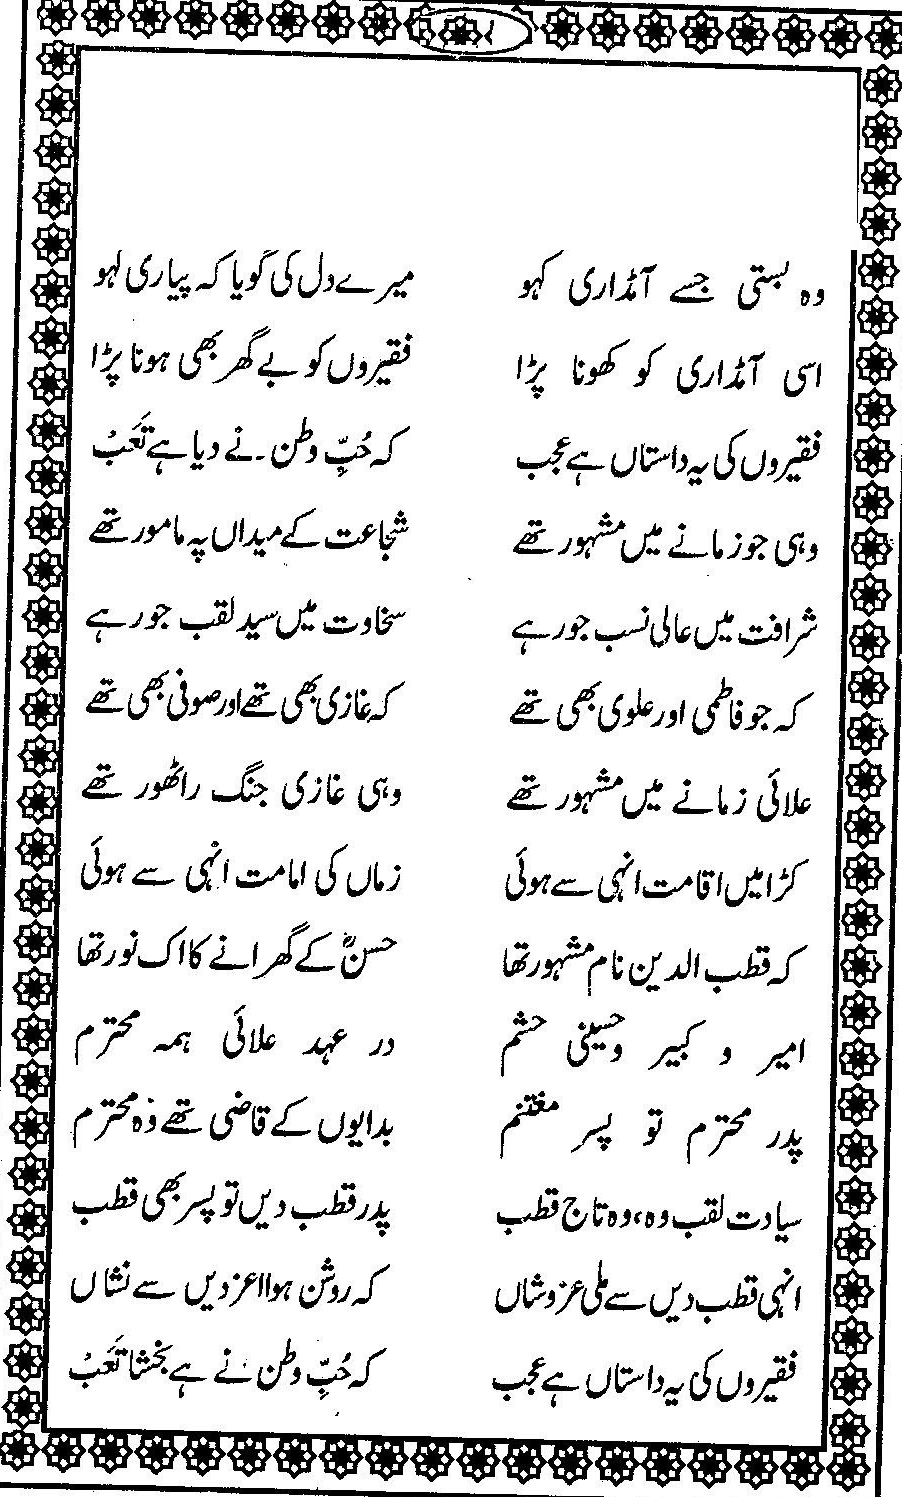 وہ بستی جسے آنڈاری کہو میرے دل کی گویا کہ پیاری لہو
اسی آنڈاری کو کھونا پڑا فقیروں کو بے گھر بھی ہونا پڑا
فقیروں کی یہ داستاں ہے عجب کہ حُبِّ وطن نے دیا ہے تَعَبْ
وہی جو زمانے میں مشہور تھے شجاعت کے میداں پہ مامور تھے
شرافت میں عالی نسب جو رہے سخاوت میں سید لقب جو رہے
کہ جو فاطمی اور علوی بھی تھے کہ غازی بھی تھے اور صوفی بھی تھے
علائی زمانے میں مشہور تھے وہی غازی جنگ راٹھور تھے
کڑا میں اقامت انہی سے ہوئی زماں کی امامت انہی سے ہوئی
کہ قطب الدین نام مشہور تھا حسنؓ کے گھرانے کا اک نور تھا
امیر و کبیر و حسینی حشم در عہد علائی ہمہ محترم
پدر محترم تو پسر مغتنم بدایوں کے قاضی تھے وہ محترم
سیادت لقب وہ، وہ تاج قطب پدر قطب دیں تو پسر بھی قطب
انہی قطب دیں سے ملی عز و شاں کہ روشن ہوا اعز دیں سے نشاں
فقیروں کی یہ داستاں ہے عجب کہ حُبِّ وطن نے ہے بخشا تَعَبْ